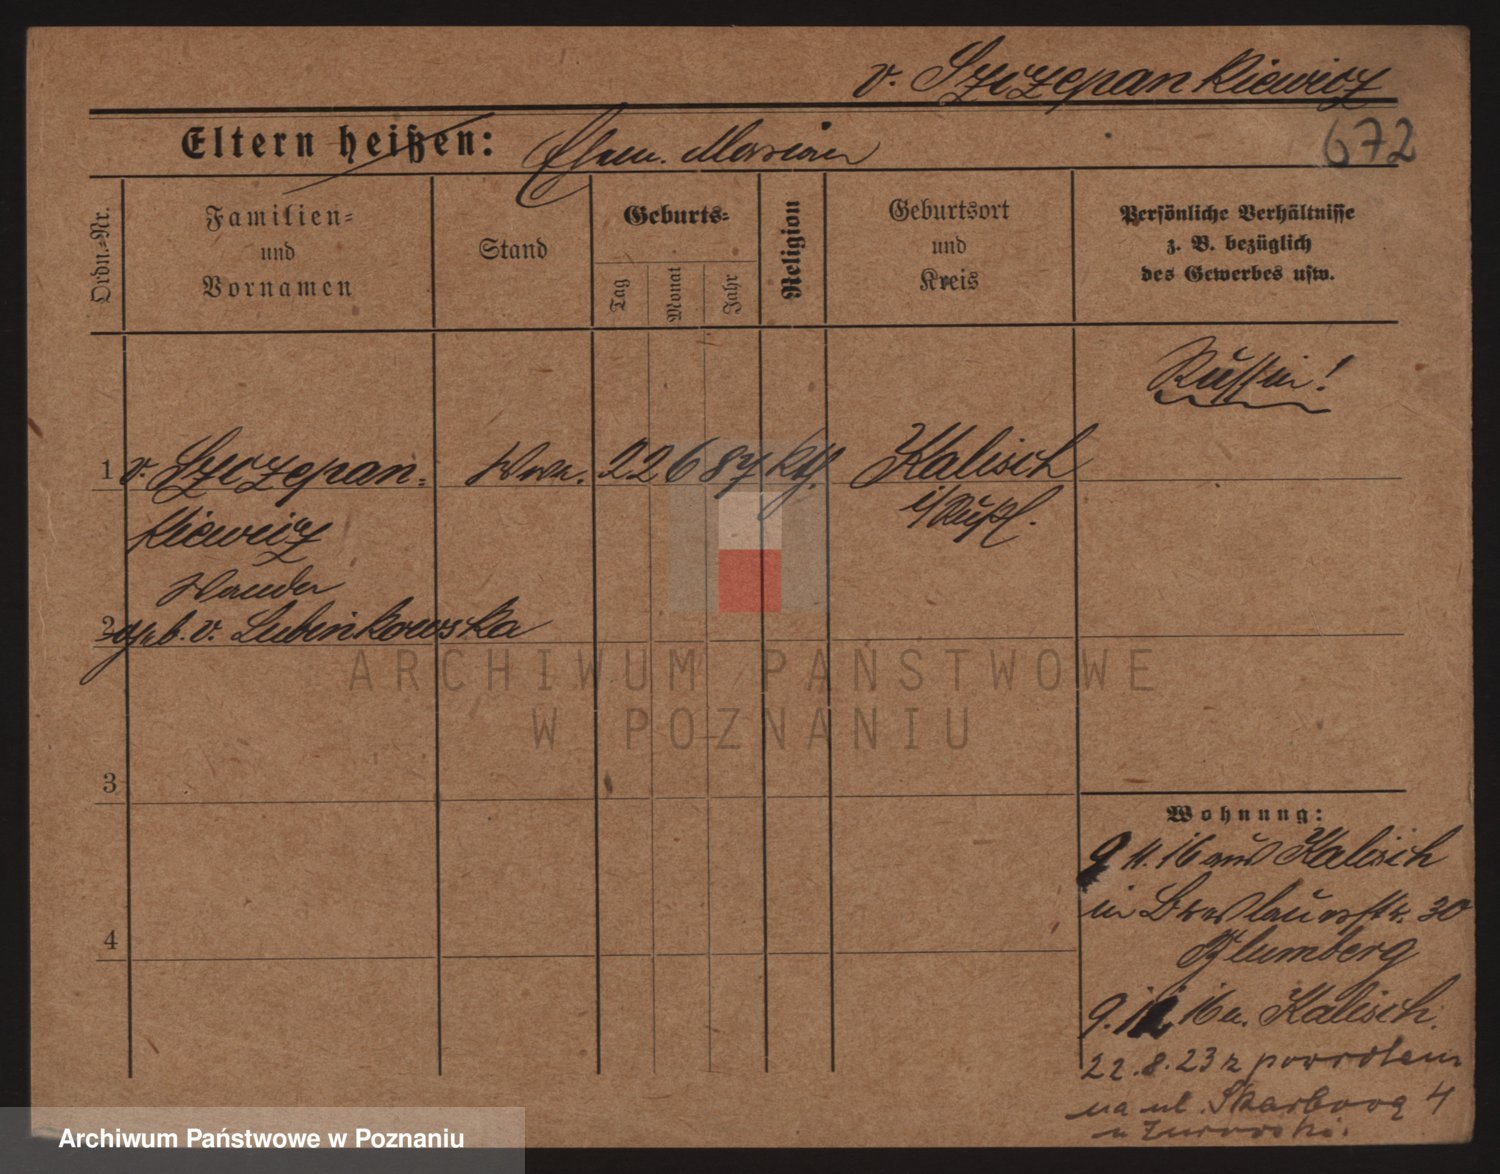 v. Szczepankiewicz
Eltern heißen: Ehem. Marian
672
Ordn.=Nr.
Familien=
und
Vornamen
Stand
Geburts=
Tag
Monat
Jahr
Religion
Geburtsort
und
Kreis
Persönliche Verhältnisse
z. B. bezüglich
des Gewerbes usw.
Russin!
1 v. Szczepan= Wwe. 22 6 87 kth. Kalisch
kiewicz i/Rußl.
Wanda
2 geb. v. Lubinkowska
ARCHIWUM PAŃSTWOWE
W POZNANIU
3
Wohnung:
9 11. 16 aus Kalisch
in Breslauerstr. 30
Blumberg
4
9. 12 16 n. Kalisch.
22.8.23 z powrotem
na ul. Skarbową 4
u Żurowski.
Archiwum Państwowe w Poznaniu